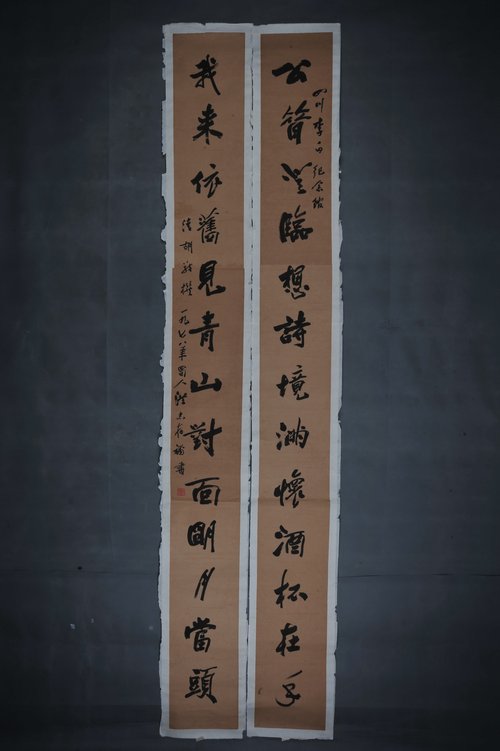 四川李白紀念館
公昔登臨想詩境滿懷酒杯在手
我来依舊見青山對面明月當頭
清胡 撰 一九七八年蜀人 書